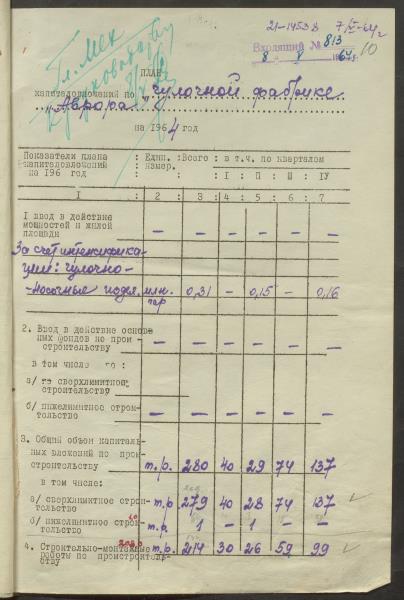 21-1453 В 7/V-64г
Гл. Мех
Входящий № 813
8 - V 1964г. 10
ПЛАН
капиталовложений по Чулочной фабрике
„Аврора"
на 1964 год
Показатели плана капиталовложений на 196 год : Един. измер. : Всего : в т.ч. по кварталам
: I : П : Ш : IУ
I : 2 : 3 : 4 : 5 : 6 : 7
I ввод в действие
мощностей и жилой
площади – – – – – –
За счет интенсифика-
ции: чулочно-
-носочные издел. млн. пар 0,31 – 0,15 – 0,16
2. Ввод в действие основ-
ных фондов по пром-
строительству – – – – – –
в том числе по :
а/ по сверхлимитное
строительству
б/ нижелимитное строи-
тельство – – – – – –
3. Общий объем капиталь-
ных вложений по пром-
строительству т.р. 280 40 29 74 137
в том числе:
а/ сверхлимитное строи-
тельство т.р. 279 40 28 74 137
б/ нижелимитное строи-
тельство т.р. 1 – 1 – –
4. Строительно-монтажные
работы по промстроитель-
ству т.р. 214 30 26 59 99